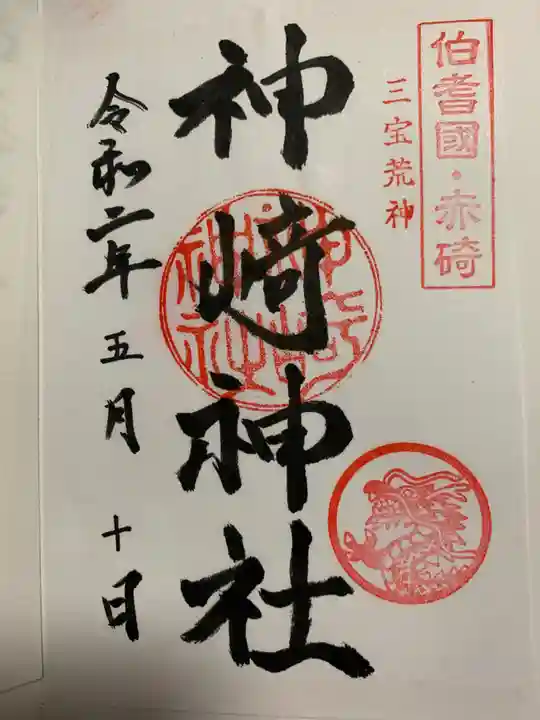 伯耆國・赤碕
三宝荒神
神﨑神社
神﨑神社
令和二年五月十日